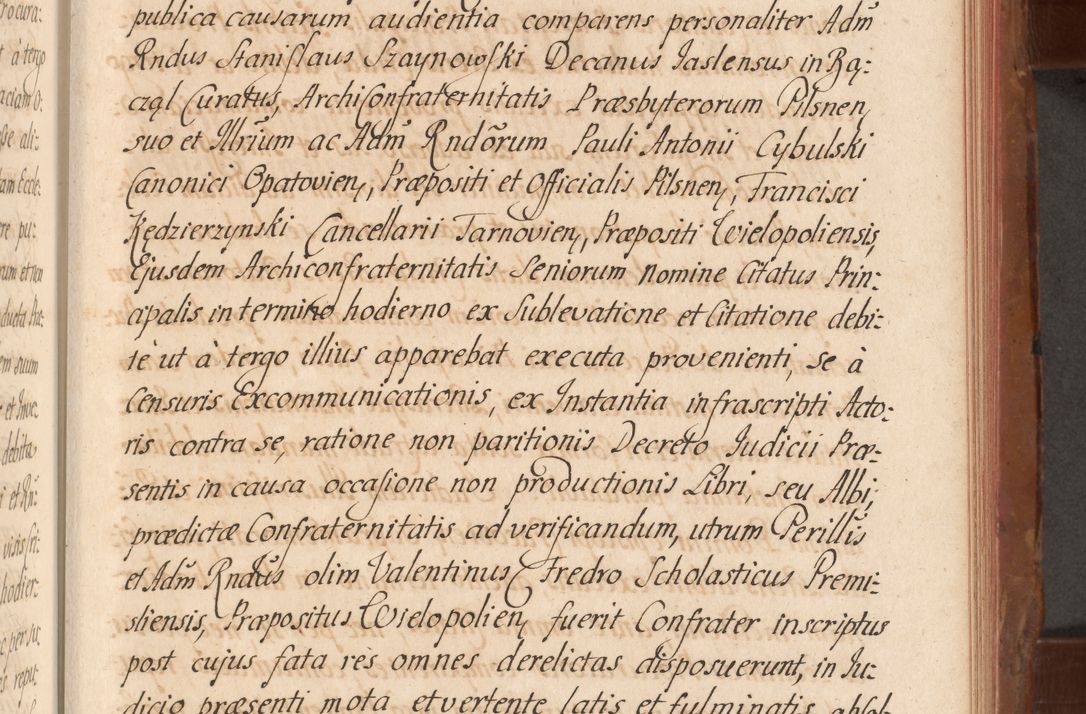 publica causarum audientia comparens personaliter Adm̃
Rndus Stanislaus Szaynowski Decanus Jaslensus in Rą:
cząl Curatus, ArchiConfraternitatis Præsbyterorum Pilsnen,
suo et Illrĩum ac Adm̃ Rndõrum Pauli Antonii Cybulski
Canonici Opatovien, Præpositi et Officialis Pilsnen, Francisci
Kędzierzynski Cancellarii Tarnovien, Præpositi Wielopoliensis,
Ejusdem Archiconfraternitatis Seniorum nomine Citatus Prin:
cipalis in termino hodierno ex Sublevatione et Citatione debi:
tè ut à tergo illius apparebat executa provenienti, se à
Censuris Excommunicationis, ex Instantia infrascripti Acto:
ris contra se, ratione non paritionis Decreto Judicii Præ:
sentis in causa occasione non productionis Libri, seu Albi,
prædictæ Confraternitatis ad verificandum, utrum Perillis
et Adm̃ Rndus olim Valentinus Fredro Scholasticus Premi:
sliensis, Præpositus Wielopolien, fuerit Confrater inscriptus
post cujus fata res omnes derelictas disposuerunt, in Ju:
dicio præsenti mota et vertente latis et fulminatis absol:
à tergo